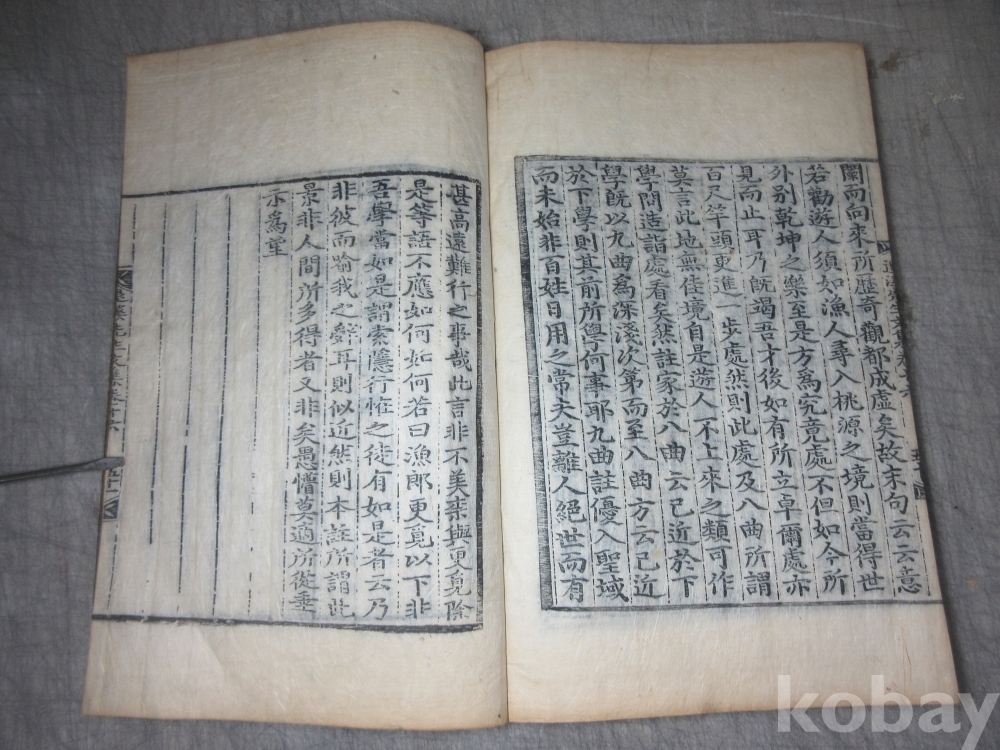 闌而向來所歷奇觀都成虛矣故末句云云意
若勸遊人須如漁人尋入桃源之境則當得世
外別乾坤之樂至是方為究竟處不但如今所
見而止耳乃既竭吾才後如有所立卓爾處亦
百尺竿頭更進一步處然則此處及八曲所謂
莫言此地無佳境自是遊人不上來之類可作
學問造詣處看矣然註家於八曲云已近於下
學既以九曲為深淺次第而至八曲方云已近
於下學則其前所學何事耶九曲註優入聖域
而未始非百姓日用之常夫豈離人絕世而有
甚高遠難行之事哉此言非不美矣與更覓除
是等語不應如何如何若曰漁郎更覓以下非
吾學當如是謂索隱行怪之徒有如是者云乃
非彼而喻我之辭耳則似近然則本註所謂此
景非人間所多得者又非矣愚懵莫適所從垂
示爲望
先生文集卷十六
kobay